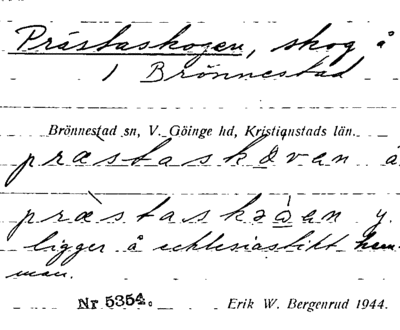 Prästaskogen, skog å
1 Brönnestad
Brönnestad sn, V. Göinge hd, Kristianstads län.
præstaskövan ä
præstaskɔ̀an y.
ligger å ecklesiastikt hem-
man.
Nr 5354. Erik W. Bergenrud 1944.